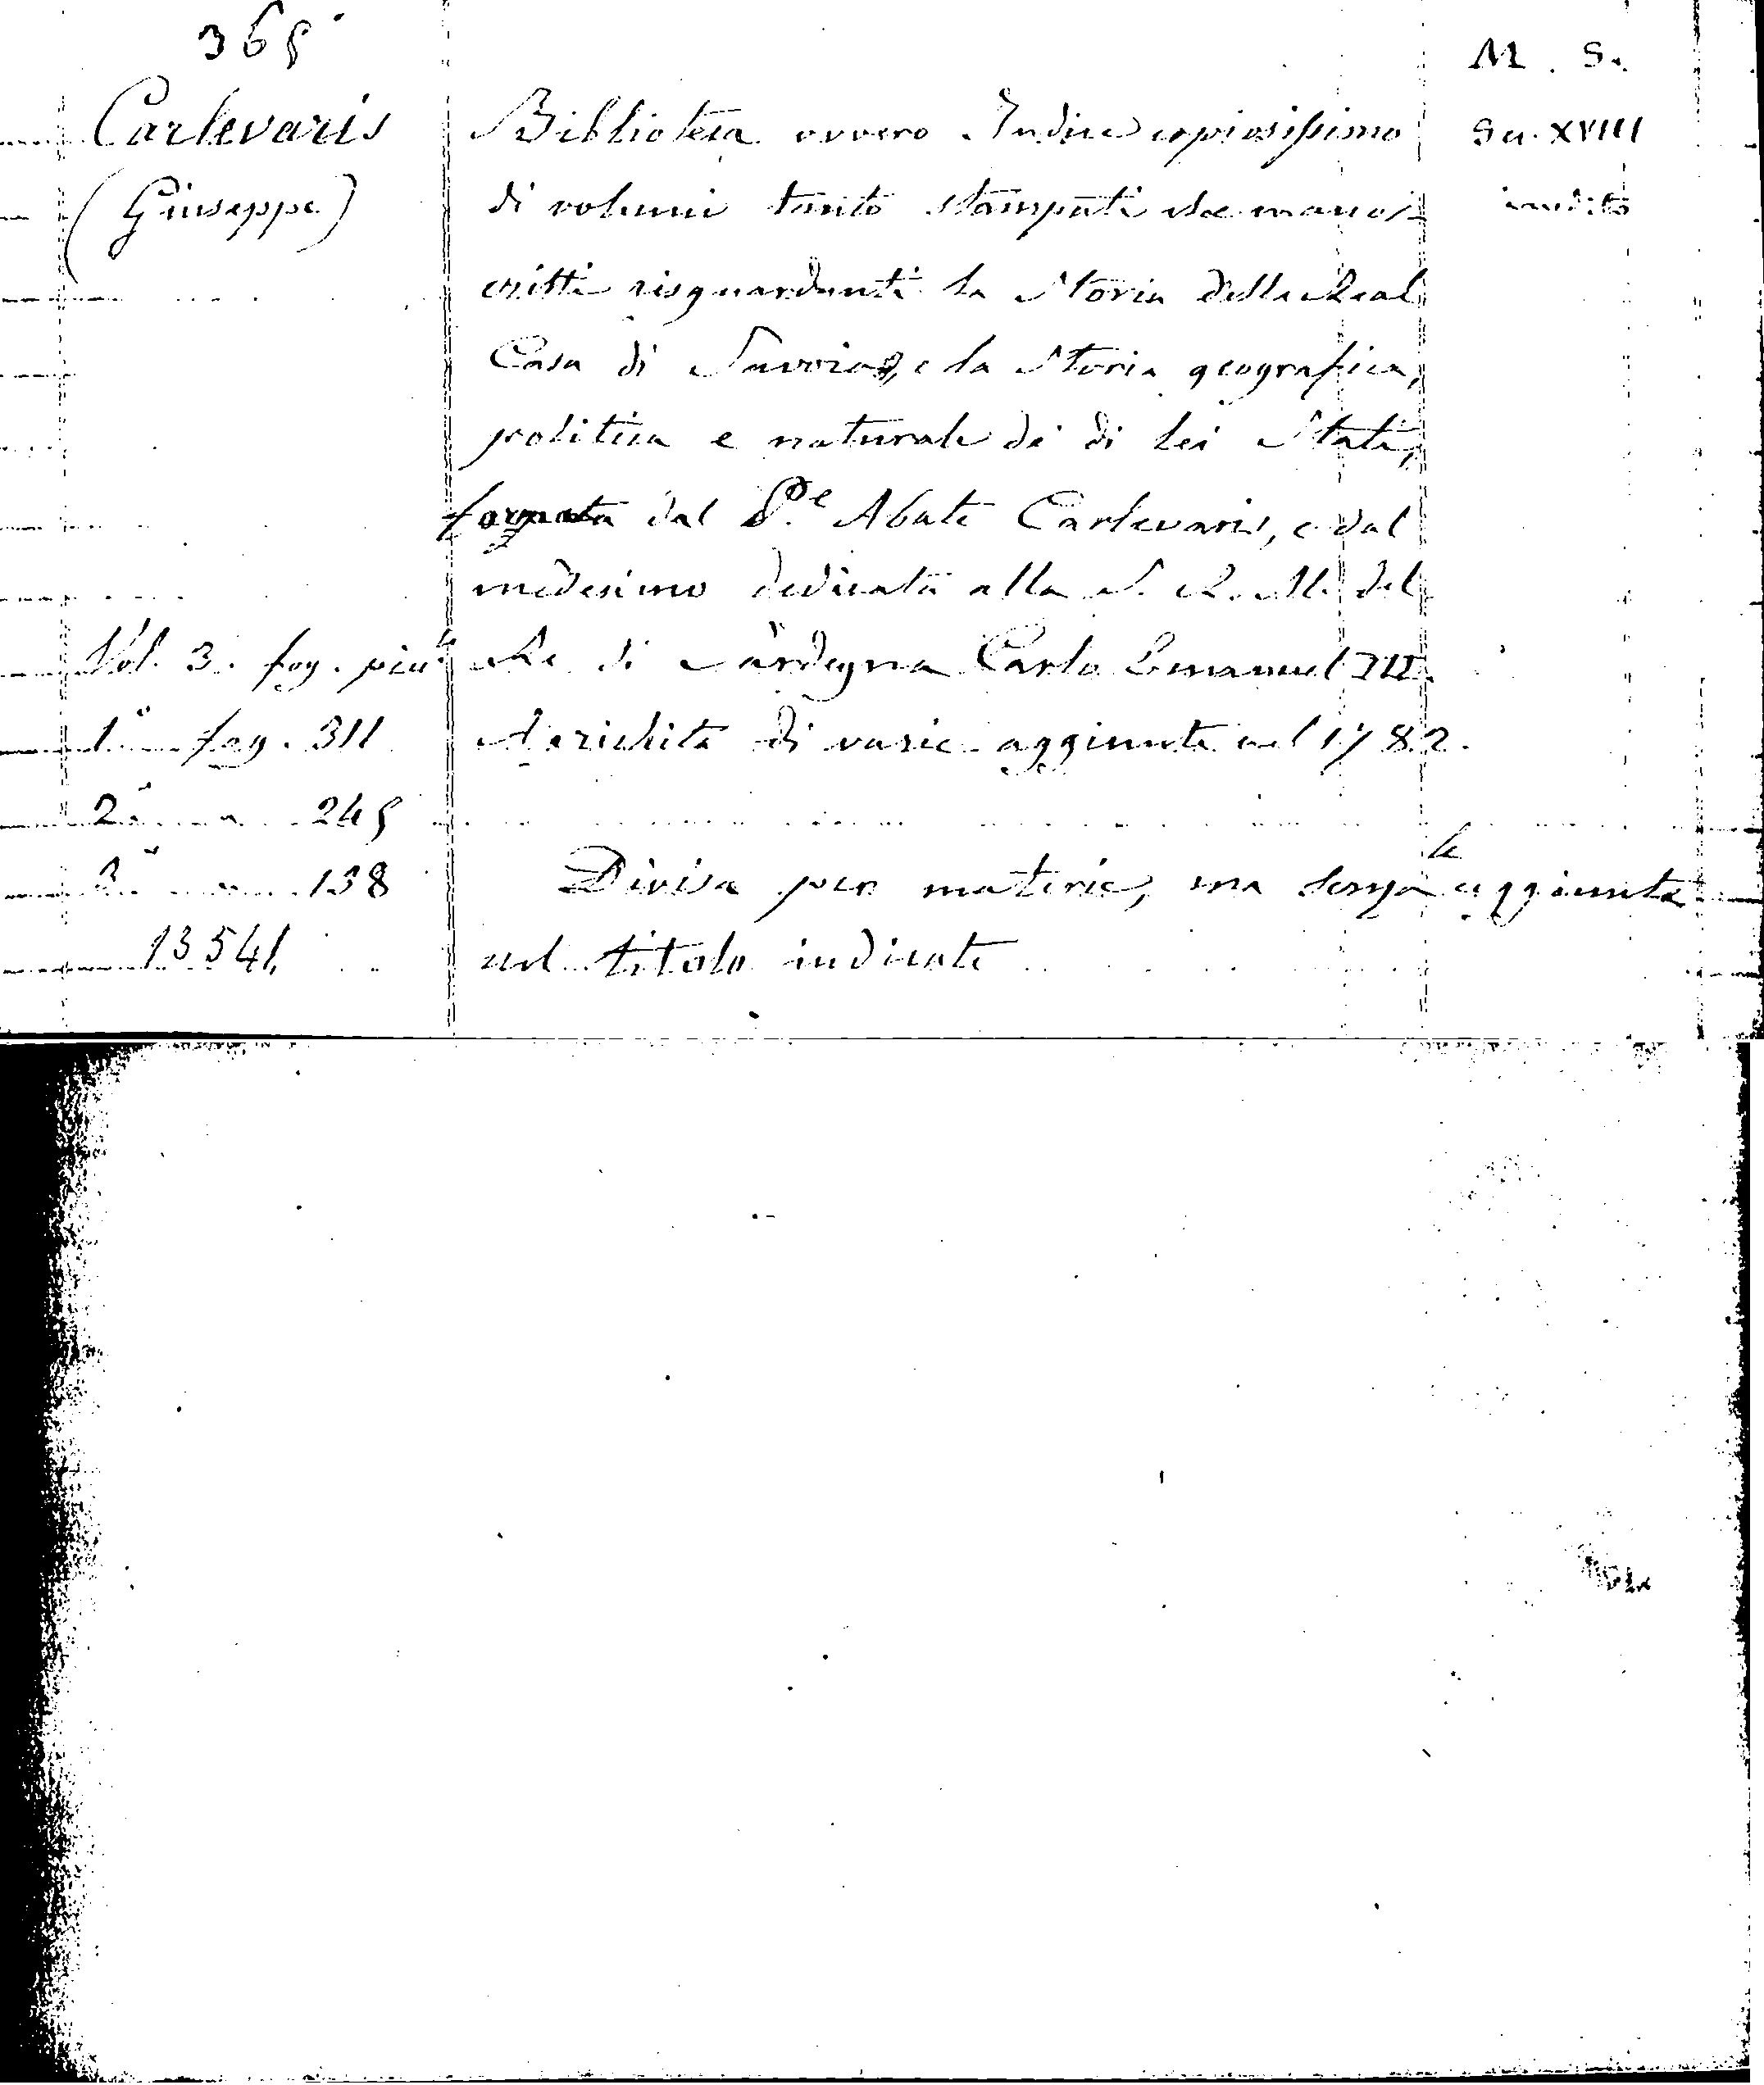 365
M. S.
Carlevaris
Biblioteca ovvero Indice copiosissimo
Sec. XVIII
(Giuseppe)
di volumi tanto stampati che manos-
inedito
critti risguardanti la Storia della Real
Casa di Savoia, e la Storia geografica,
politica e naturale de di lei Stati,
formata dal S.re Abate Carlevaris, e dal
medesimo dedicata alla S. R. M. del
Vol. 3. fog. picc.
Re di Sardegna Carlo Emanuel III.
1° fog. 311
Arrichita di varie aggiunte nel 1782.
2° " 245
3° " 138
Divisa per materie, ma senza le aggiunte
13541
nel titolo indicate